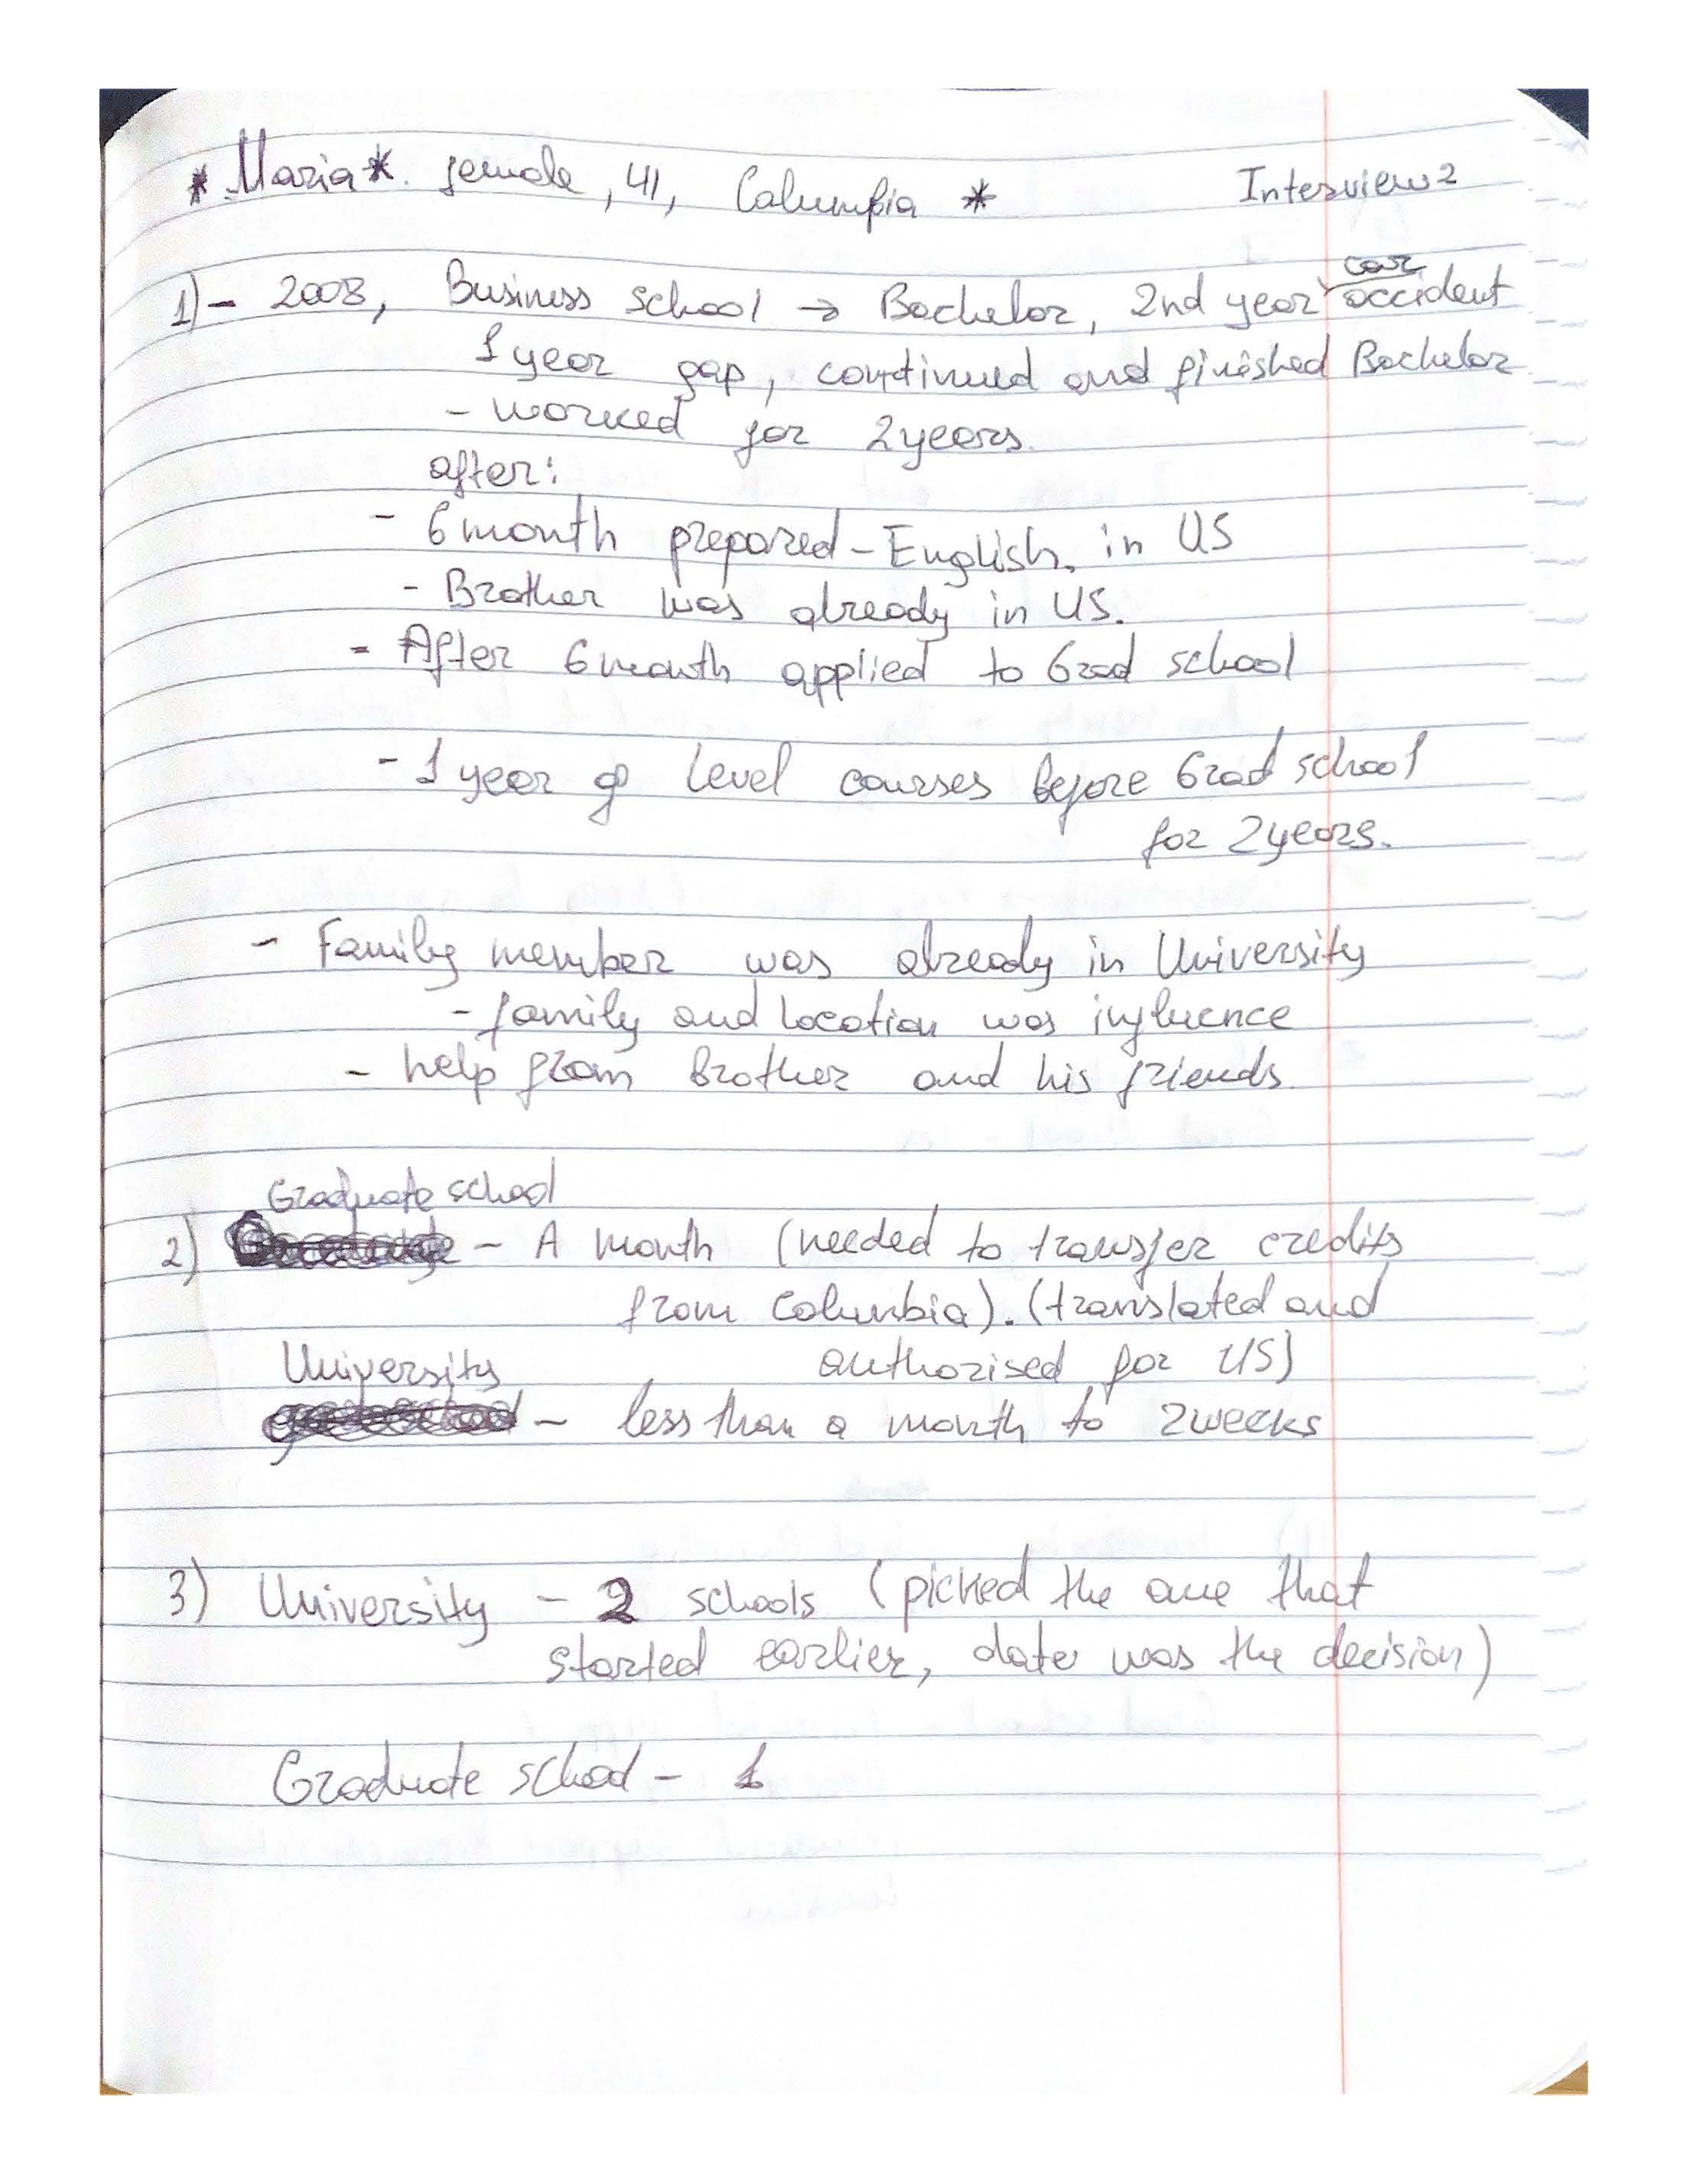 * Maria *. female, 41, Columbia * Interview 2
1) - 2008, Business school → Bachelor, 2nd year car accident
1 year gap, continued and finished Bachelor
- worked for 2 years.
after:
- 6 month prepared - English, in US
- Brother was already in US.
- After 6 month applied to Grad school
- 1 year of level courses before Grad school
for 2 years.
- Family member was already in University
- family and location was influence
- help from Brother and his friends.
Graduate school
2) - A month (needed to transfer credits
from Columbia). (translated and
University authorised for US)
- less than a month to 2 weeks
3) University - 2 schools (picked the one that
started earlier, date was the decision)
Graduate school - 1